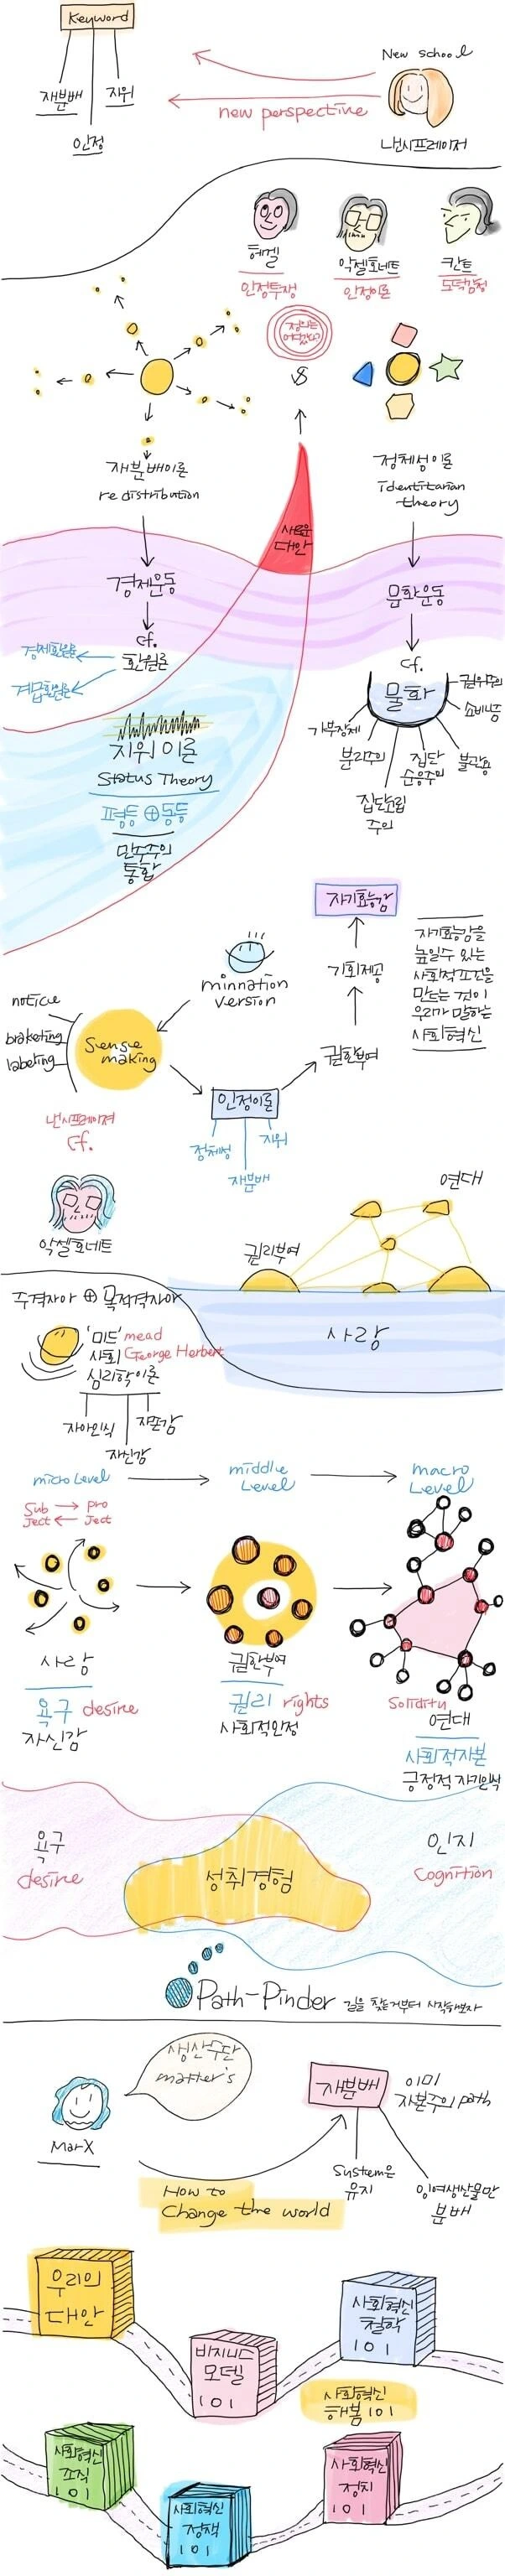 Keyword
재분배
지위
인정
New school
new perspective
낸시프레이저
헤겔
인정투쟁
악셀호네트
인정이론
칸트
도덕감정
정의는
어떻게?
vs
재분배이론
redistribution
정체성이론
identitarian
theory
새로운
대안
경제운동
cf.
환원론
경제환원론
계급환원론
문화운동
cf.
물화
가부장제
분리주의
집단
순응주의
불관용
쇼비니즘
집단고립
주의
지위이론
Status Theory
평등 ⊕ 동등
민주주의
통합
자기효능감
기회제공
권한부여
자기효능감을
높일수 있는
사회적조건을
만드는 것이
우리가 말하는
사회혁신
minnation
version
notice
braketing
labeling
Sense
making
인정이론
정체성
지위
재분배
낸시프레이져
cf.
악셀호네트
연대
권리부여
사랑
주격자아 ⊕ 목적격자아
'미드' mead
George Herbert
사회
심리학이론
자아인식
자존감
자신감
micro Level
middle
Level
macro
Level
Sub
ject
pro
ject
사랑
욕구 desire
자신감
권한부여
권리 rights
사회적인정
연대
사회적자본
긍정적 자기인식
욕구
desire
성취경험
인지
Cognition
Path-Pinder 길을 찾는거부터 시작해보자
생산수단
matter's
Marx
재분배
이미
자본주의 path
System은
유지
잉여생산물만
분배
How to
Change the world
우리의
대안
비지니스
모델
101
사회혁신
철학
101
사회혁신
해봄 101
사회혁신
조직
101
사회혁신
정책
101
사회혁신
정치
101